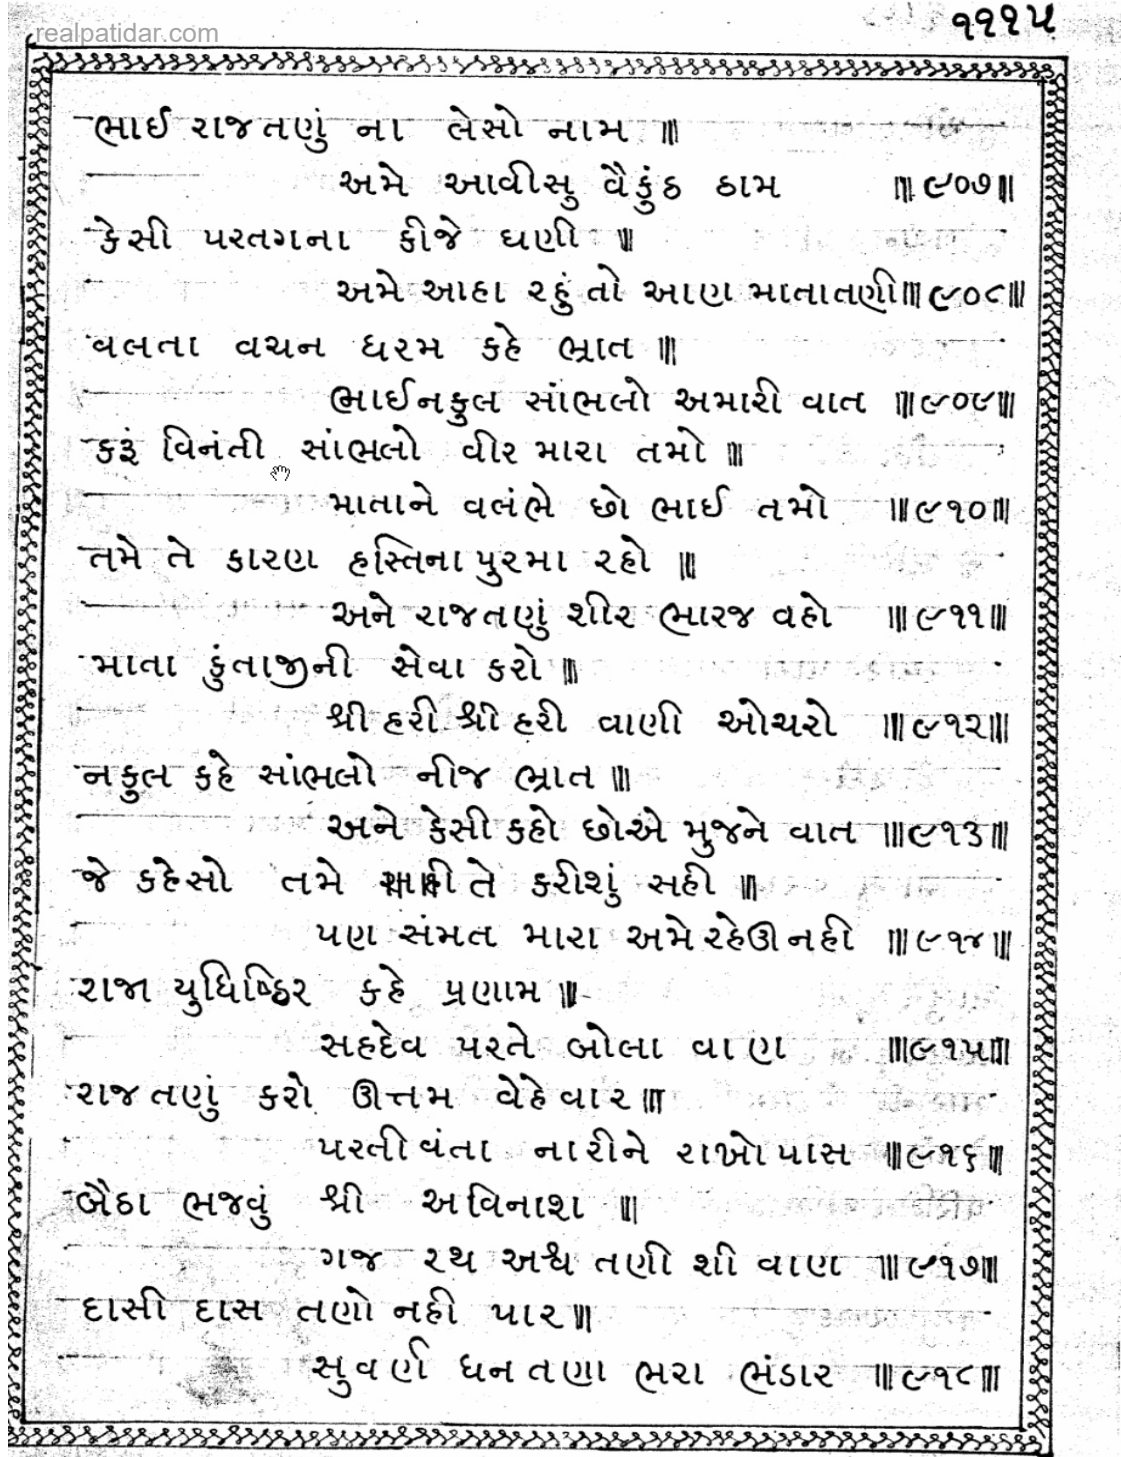 realpatidar.com
૧૧૧૫
ભાઈ રાજતણું ના લેસો નામ ॥
અમે આવીસુ વૈકુંઠ ઠામ ॥૯૦૭॥
કેસી પરતગના કીજે ઘણી ॥
અમે આહા રહું તો આણ માતાતણી॥૯૦૮॥
વલતા વચન ધરમ કહે ભ્રાત ॥
ભાઈનકુલ સાંભલો અમારી વાત ॥૯૦૯॥
કરૂં વિનંતી સાંભલો વીર મારા તમો ॥
માતાને વલંભે છો ભાઈ તમો ॥૯૧૦॥
તમે તે કારણ હસ્તિનાપુરમા રહો ॥
અને રાજતણું શીર ભારજ વહો ॥૯૧૧॥
માતા કુંતાજીની સેવા કરો ॥
શ્રી હરી શ્રી હરી વાણી ઓચરો ॥૯૧૨॥
નકુલ કહે સાંભલો નીજ ભ્રાત ॥
અને કેસી કહો છોએ મુજને વાત ॥૯૧૩॥
જે કહેસો તમે તે કરીશું સહી ॥
પણ સંમત મારા અમે રહેઊ નહી ॥૯૧૪॥
રાજા યુધિષ્ઠિર કહે પ્રણામ ॥
સહદેવ પરતે બોલા વાણ ॥૯૧૫॥
રાજતણું કરો ઊત્તમ વેહેવાર ॥
પરતીવંતા નારીને રાખો પાસ ॥૯૧૬॥
બૈઠા ભજવું શ્રી અવિનાશ ॥
ગજ રથ અશ્વ તણી શી વાણ ॥૯૧૭॥
દાસી દાસ તણો નહી પાર॥
સુવર્ણ ધન તણા ભરા ભંડાર ॥૯૧૮॥